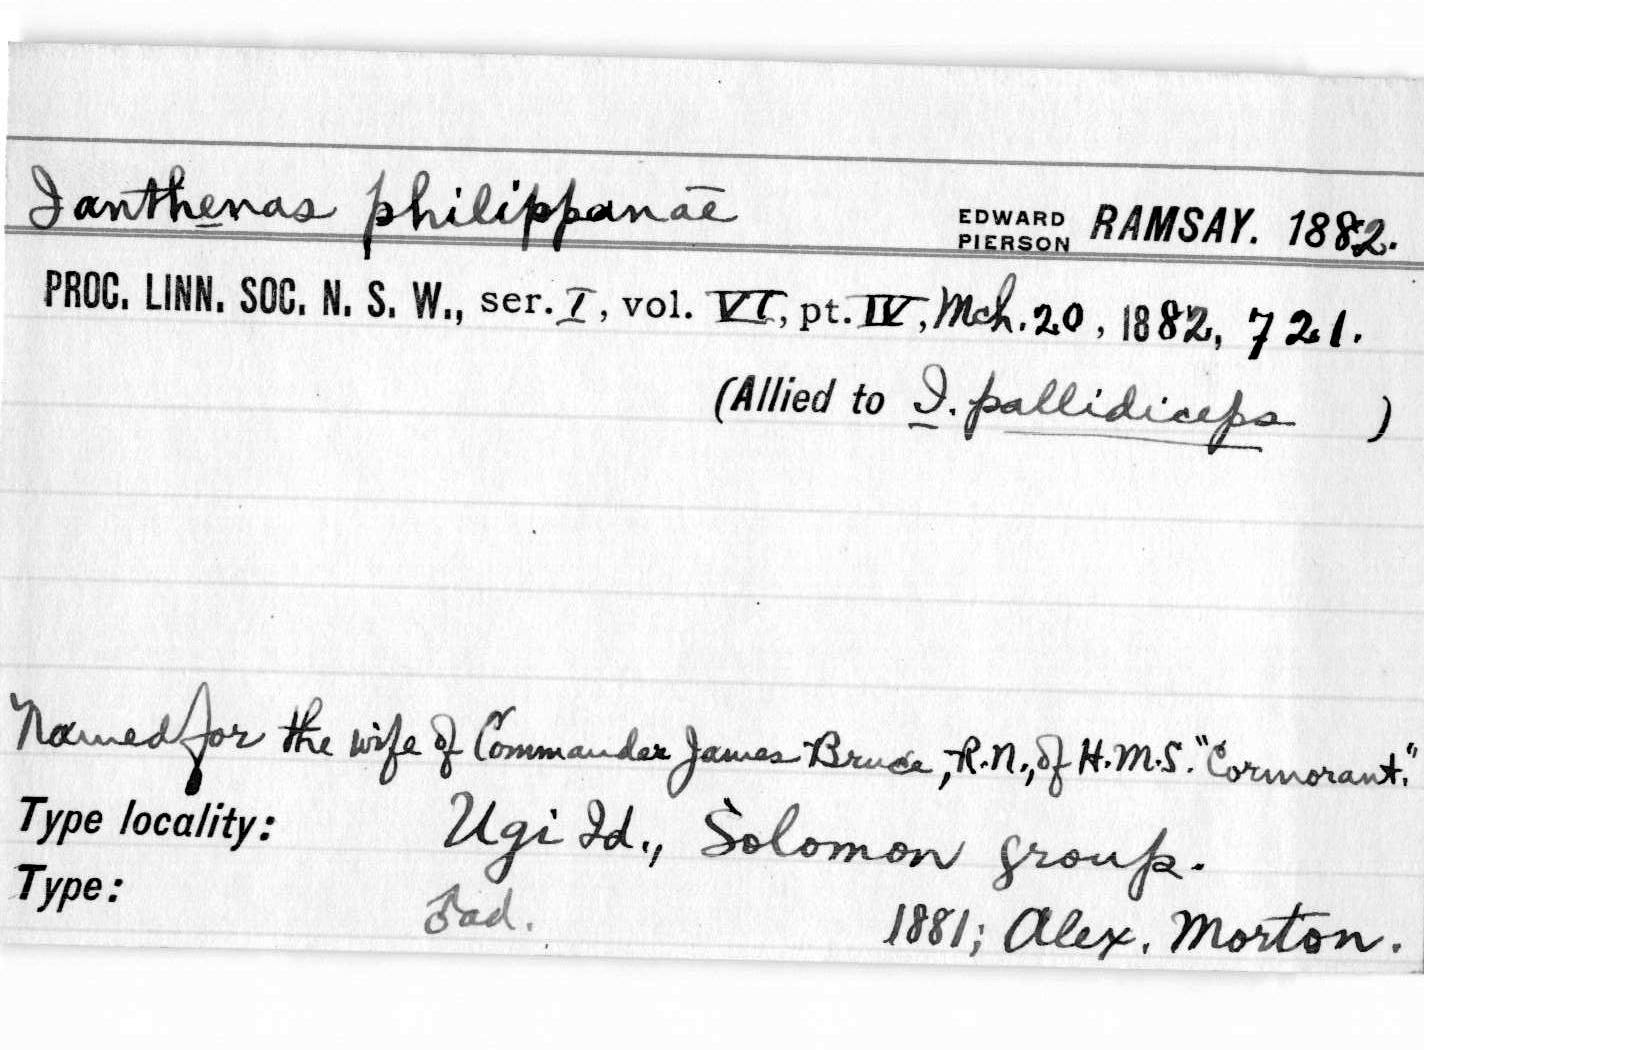 Ianthenas philippanae EDWARD PIERSON RAMSAY. 1882.
PROC. LINN. SOC. N. S. W., ser. I, vol. VI, pt. IV, Mch. 20, 1882, 721.
(Allied to I. pallidiceps )
Named for the wife of Commander James Bruce, R.N., of H.M.S. "Cormorant."
Type locality: Ugi Id., Solomon group.
Type: ♂ad. 1881; Alex. Morton.